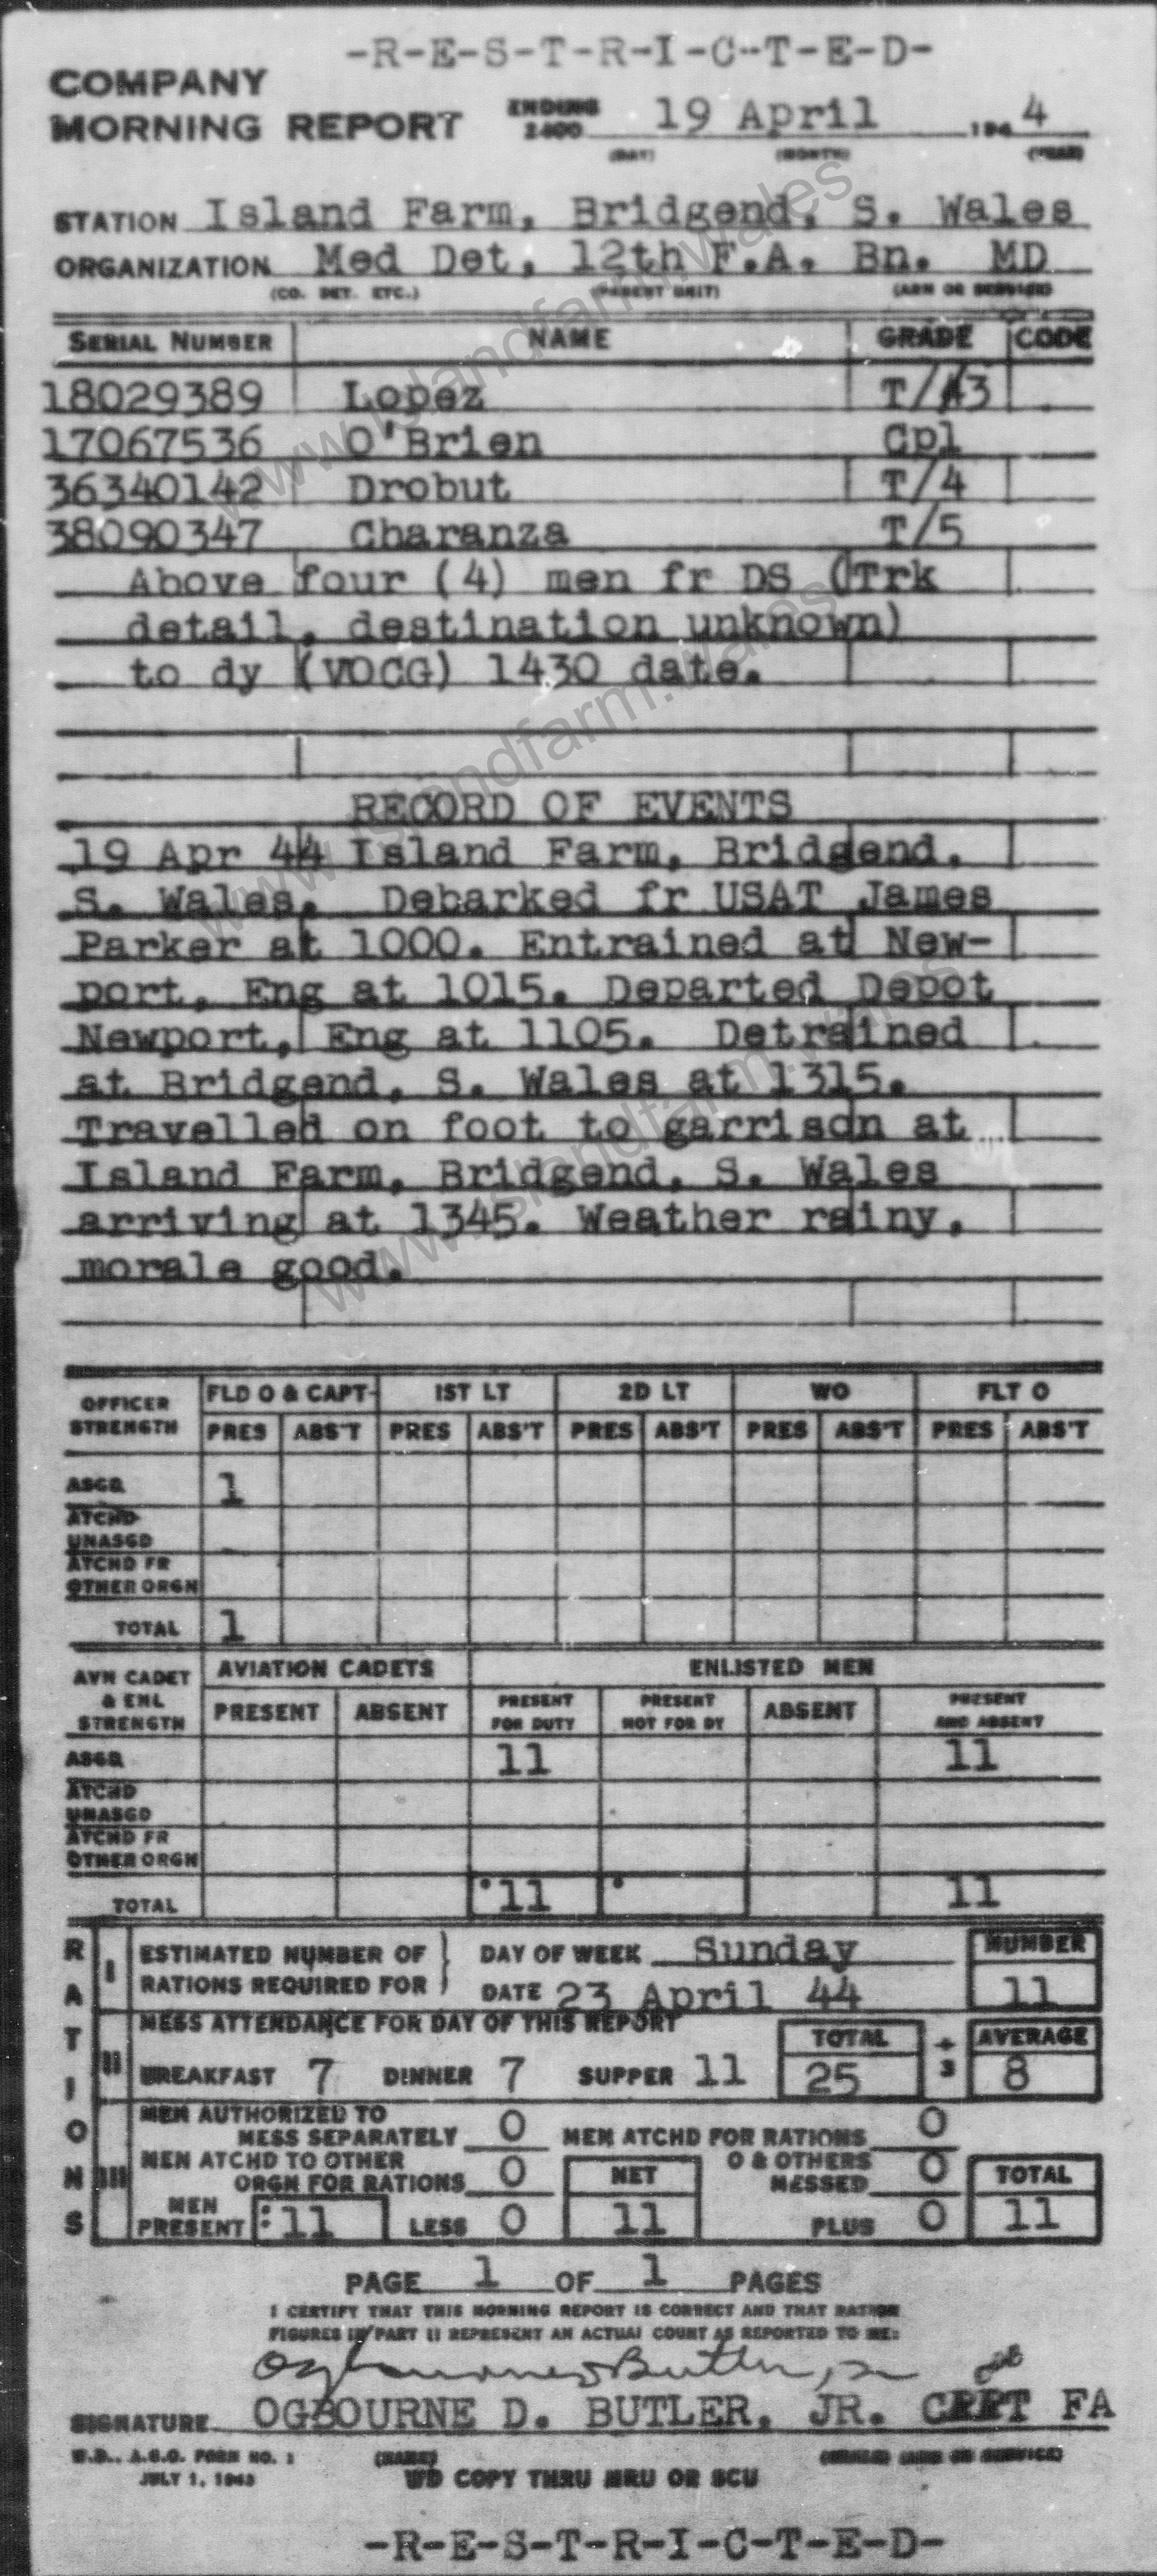 -R-E-S-T-R-I-C-T-E-D-
COMPANY
MORNING REPORT ENDING 2400 19 April 194 4
(DAY) (MONTH) (YEAR)
STATION Island Farm, Bridgend, S. Wales
ORGANIZATION Med Det, 12th F.A. Bn. MD
(CO. DET. ETC.) (PARENT UNIT) (ARM OR SERVICE)
SERIAL NUMBER NAME GRADE CODE
18029389 Lopez T/3
17067536 O'Brien Cpl
36340142 Drobut T/4
38090347 Charanza T/5
Above four (4) men fr DS (Trk
detail, destination unknown)
to dy (VOCG) 1430 date.
RECORD OF EVENTS
19 Apr 44 Island Farm, Bridgend,
S. Wales. Debarked fr USAT James
Parker at 1000. Entrained at New-
port, Eng at 1015. Departed Depot
Newport, Eng at 1105. Detrained
at Bridgend, S. Wales at 1315.
Travelled on foot to garrison at
Island Farm, Bridgend, S. Wales
arriving at 1345. Weather rainy,
morale good.
OFFICER STRENGTH FLD O & CAPT 1ST LT 2D LT WO FLT O
PRES ABS'T PRES ABS'T PRES ABS'T PRES ABS'T PRES ABS'T
ASGD 1
ATCHD UNASGD
ATCHD FR OTHER ORGN
TOTAL 1
AVN CADET & ENL STRENGTH AVIATION CADETS ENLISTED MEN
PRESENT ABSENT PRESENT FOR DUTY PRESENT NOT FOR DY ABSENT PRESENT AND ABSENT
ASGD 11 11
ATCHD UNASGD
ATCHD FR OTHER ORGN
TOTAL 11 11
RATIONS
I ESTIMATED NUMBER OF RATIONS REQUIRED FOR } DAY OF WEEK Sunday NUMBER
DATE 23 April 44 11
II MESS ATTENDANCE FOR DAY OF THIS REPORT TOTAL ÷ 3 AVERAGE
BREAKFAST 7 DINNER 7 SUPPER 11 25 8
III MEN AUTHORIZED TO MESS SEPARATELY 0 MEN ATCHD FOR RATIONS 0
MEN ATCHD TO OTHER ORGN FOR RATIONS 0 NET O & OTHERS MESSED 0 TOTAL
MEN PRESENT 11 LESS 0 11 PLUS 0 11
PAGE 1 OF 1 PAGES
I CERTIFY THAT THIS MORNING REPORT IS CORRECT AND THAT RATION
FIGURES IN PART II REPRESENT AN ACTUAL COUNT AS REPORTED TO ME:
Ogbourne D Butler, Jr
SIGNATURE OGBOURNE D. BUTLER, JR. CAPT FA
W.D., A.G.O. FORM NO. 1 (NAME) (GRADE) (ARM OR SERVICE)
JULY 1, 1943 WD COPY THRU MRU OR SCU
-R-E-S-T-R-I-C-T-E-D-
www.islandfarm.wales
www.islandfarm.wales
www.islandfarm.wales